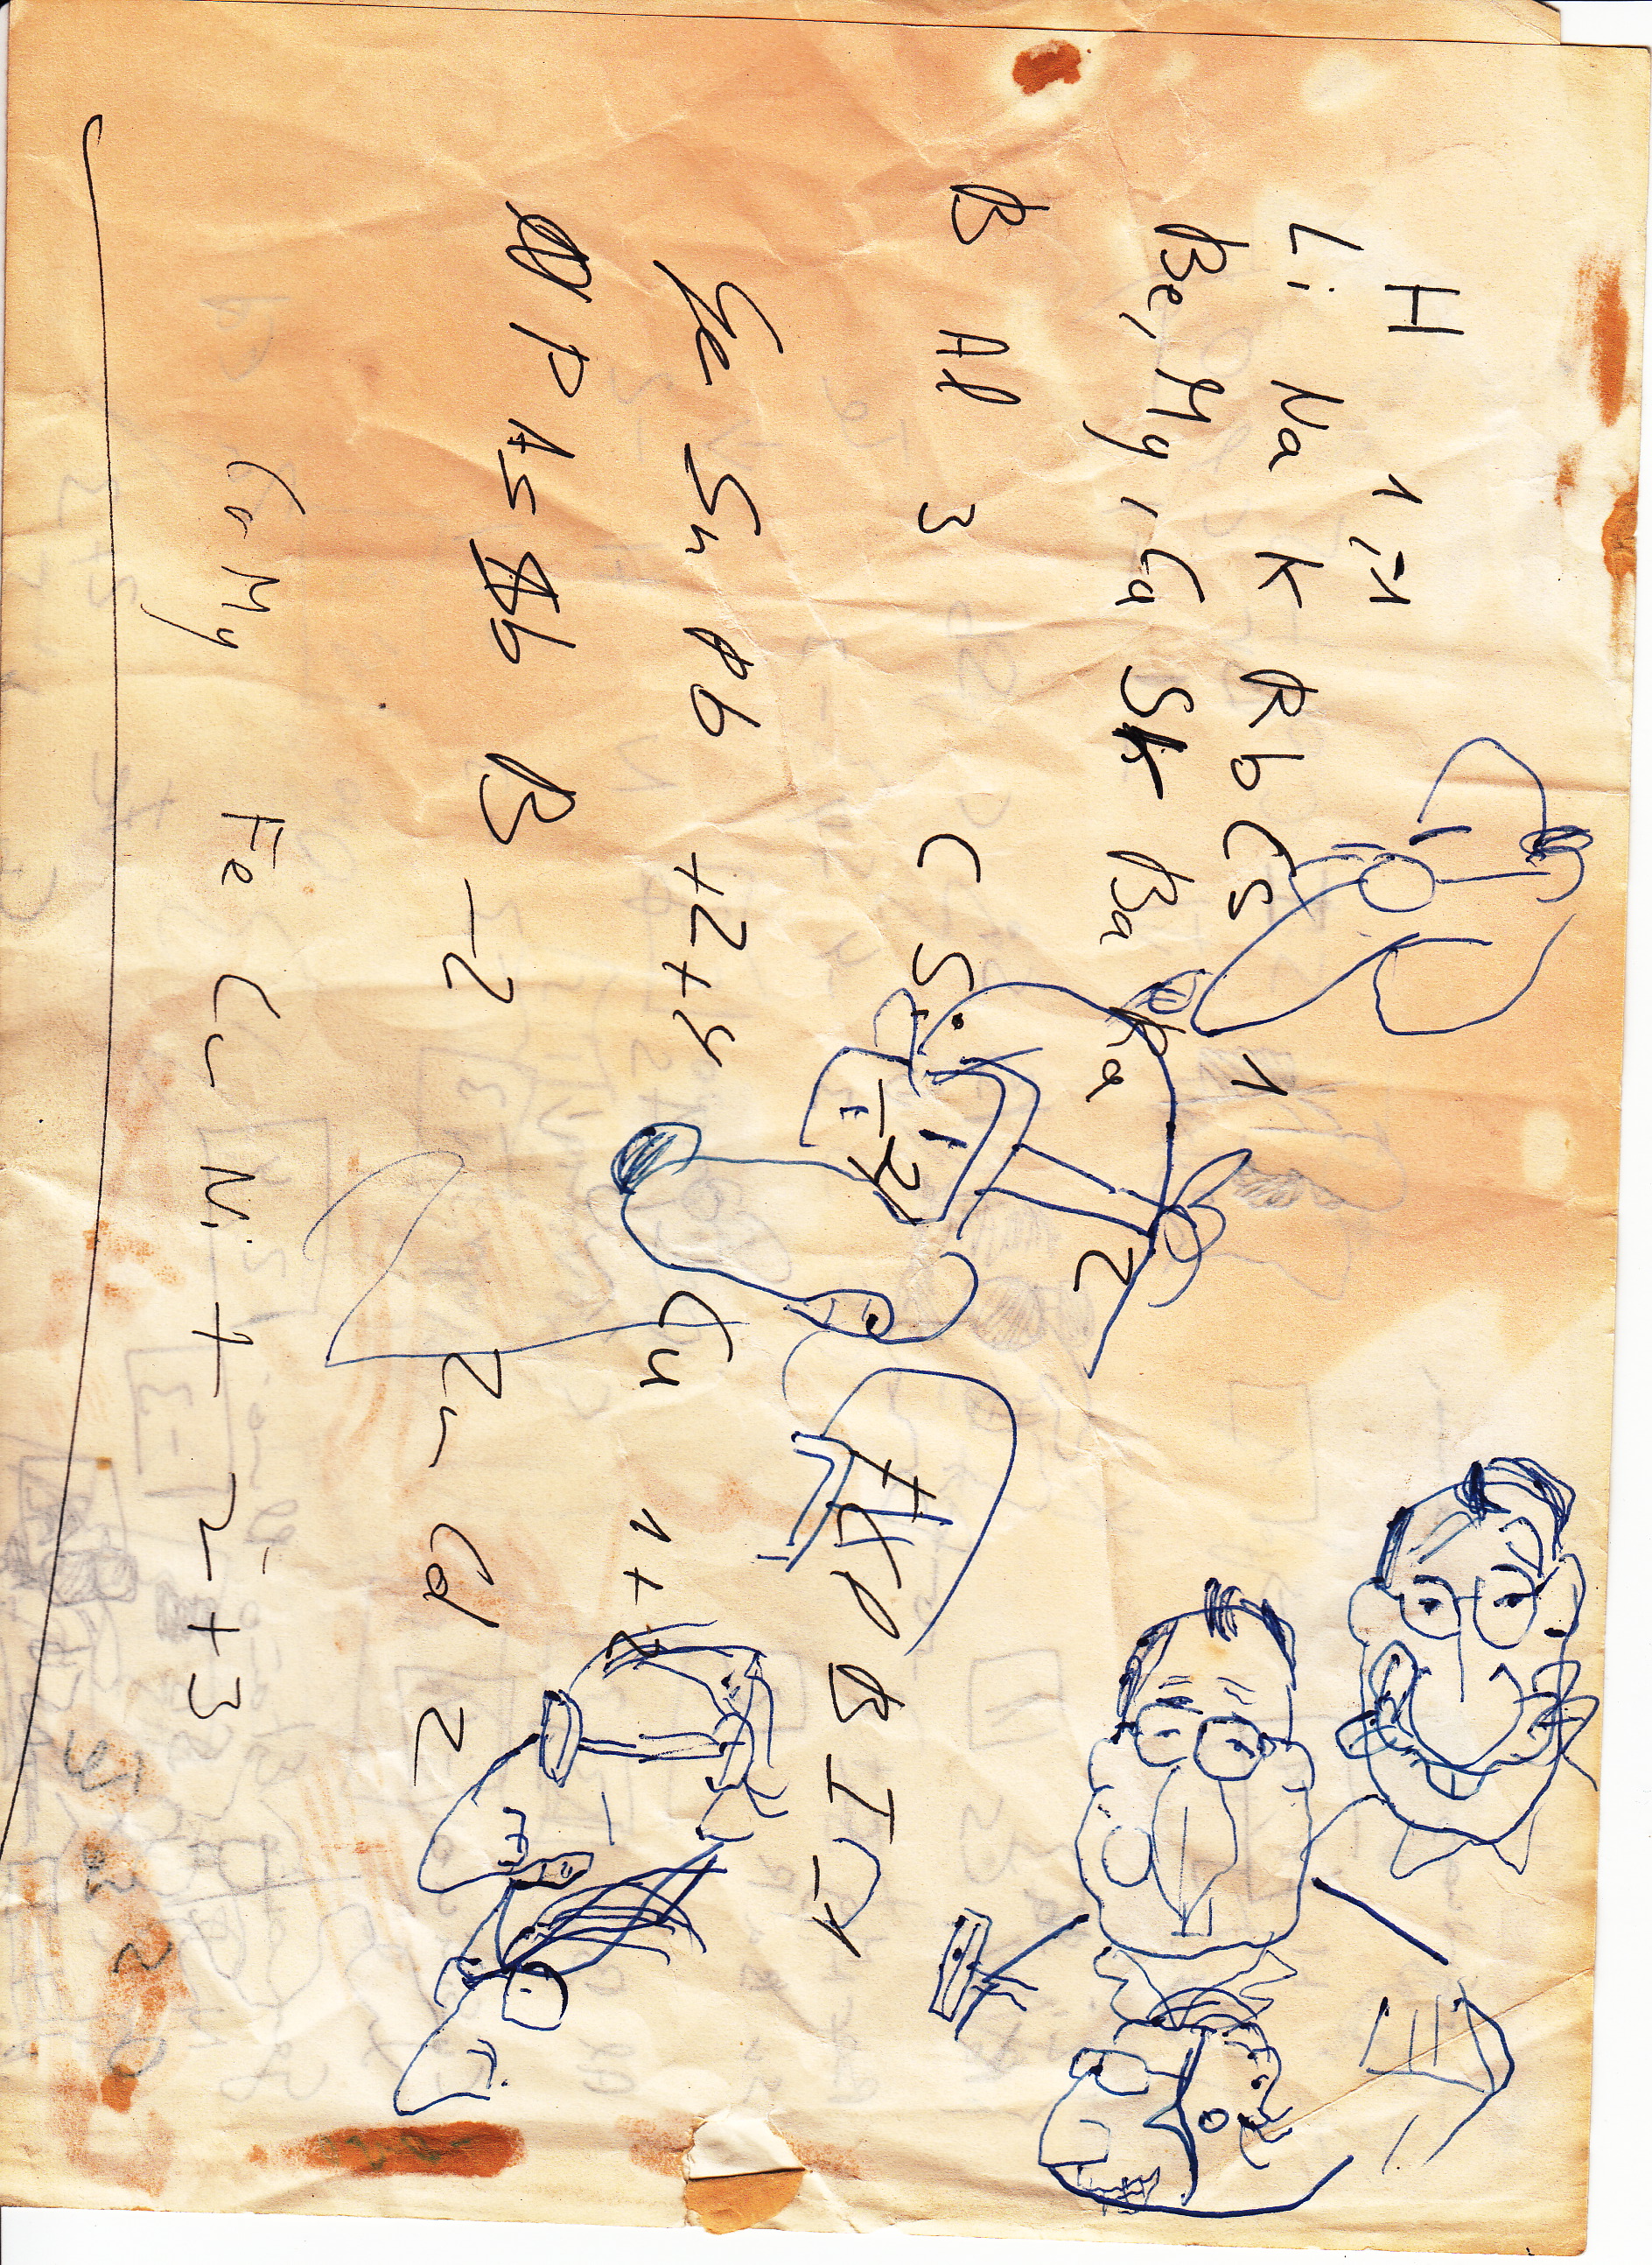 H 1,-1
Li Na K Rb Cs 1
Be, Mg, Ca Sr Ba Ra 2
B Al 3 C Si -4
F Cl Br I -1
Ge Sn Pb +2+4 Cu 1+2
P As Sb -2 Zn Cd 2
Co Mg Fe Cr Ni + 2+3